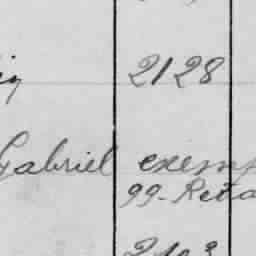 2128
Gabriel exemp
99-Reta